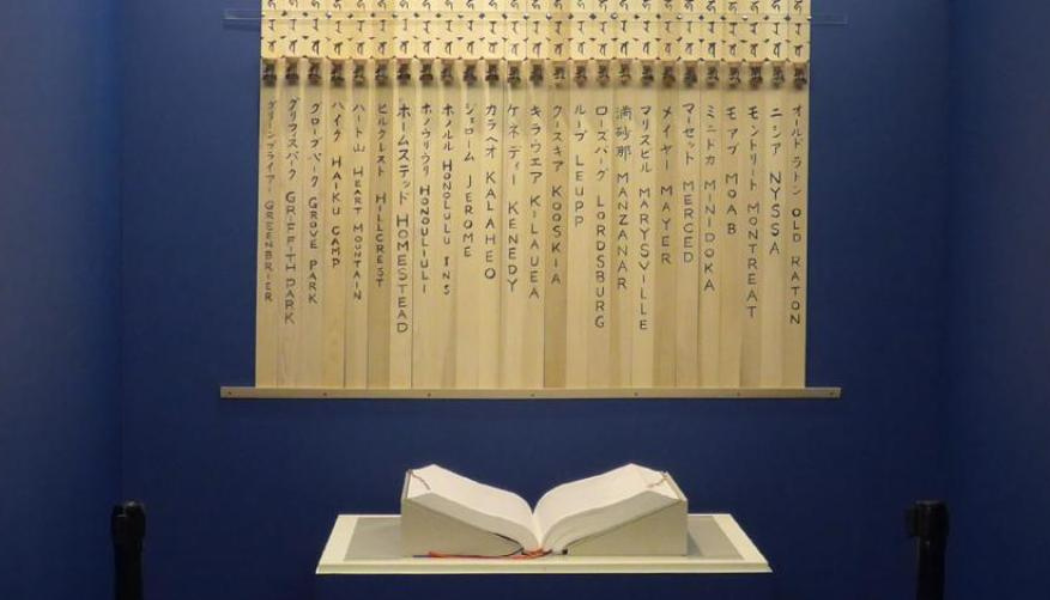 グリーンブライアー GREENBRIER
グリフィスパーク GRIFFITH PARK
グローブパーク GROVE PARK
ハイク HAIKU CAMP
ハート山 HEART MOUNTAIN
ヒルクレスト HILLCREST
ホームステッド HOMESTEAD
ホノウリウリ HONOULIULI
ホノルル HONOLULU INS
ジェローム JEROME
カラヘオ KALAHEO
ケネディー KENEDY
キラウエア KILAUEA
クースキア KOOSKIA
ループ LEUPP
ローズバーグ LORDSBURG
満砂那 MANZANAR
マリスビル MARYSVILLE
メイヤー MAYER
マーセット MERCED
ミニドカ MINIDOKA
モアブ MOAB
モントリート MONTREAT
ニシア NYSSA
オールドラトン OLD RATON